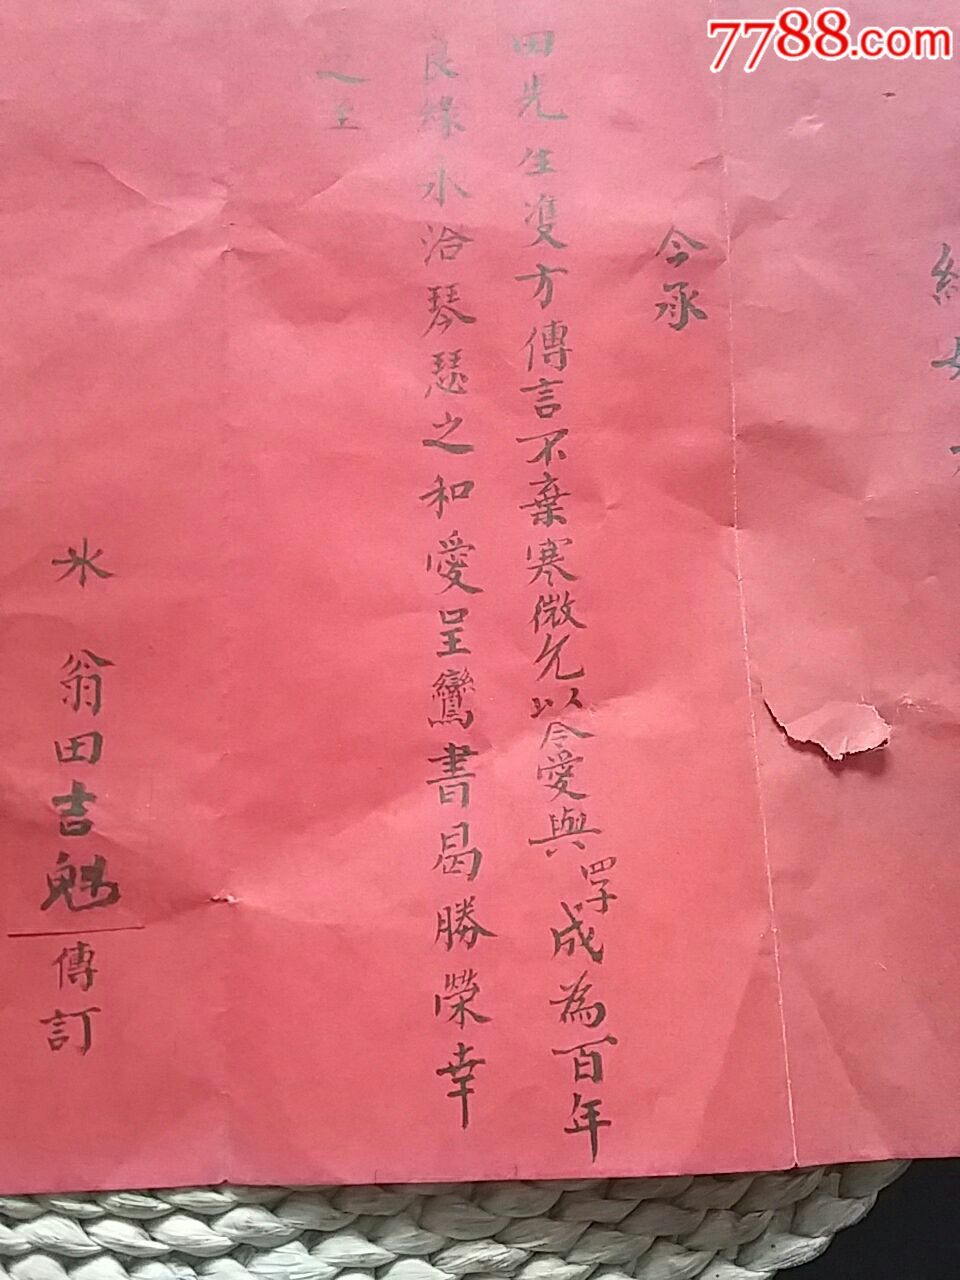 7788.com
今承
田先生双方傳言不棄寒微允以令愛與四子成為百年
良緣永洽琴瑟之和爱呈鸞書曷勝榮幸
之至
氷翁田吉魁傳訂